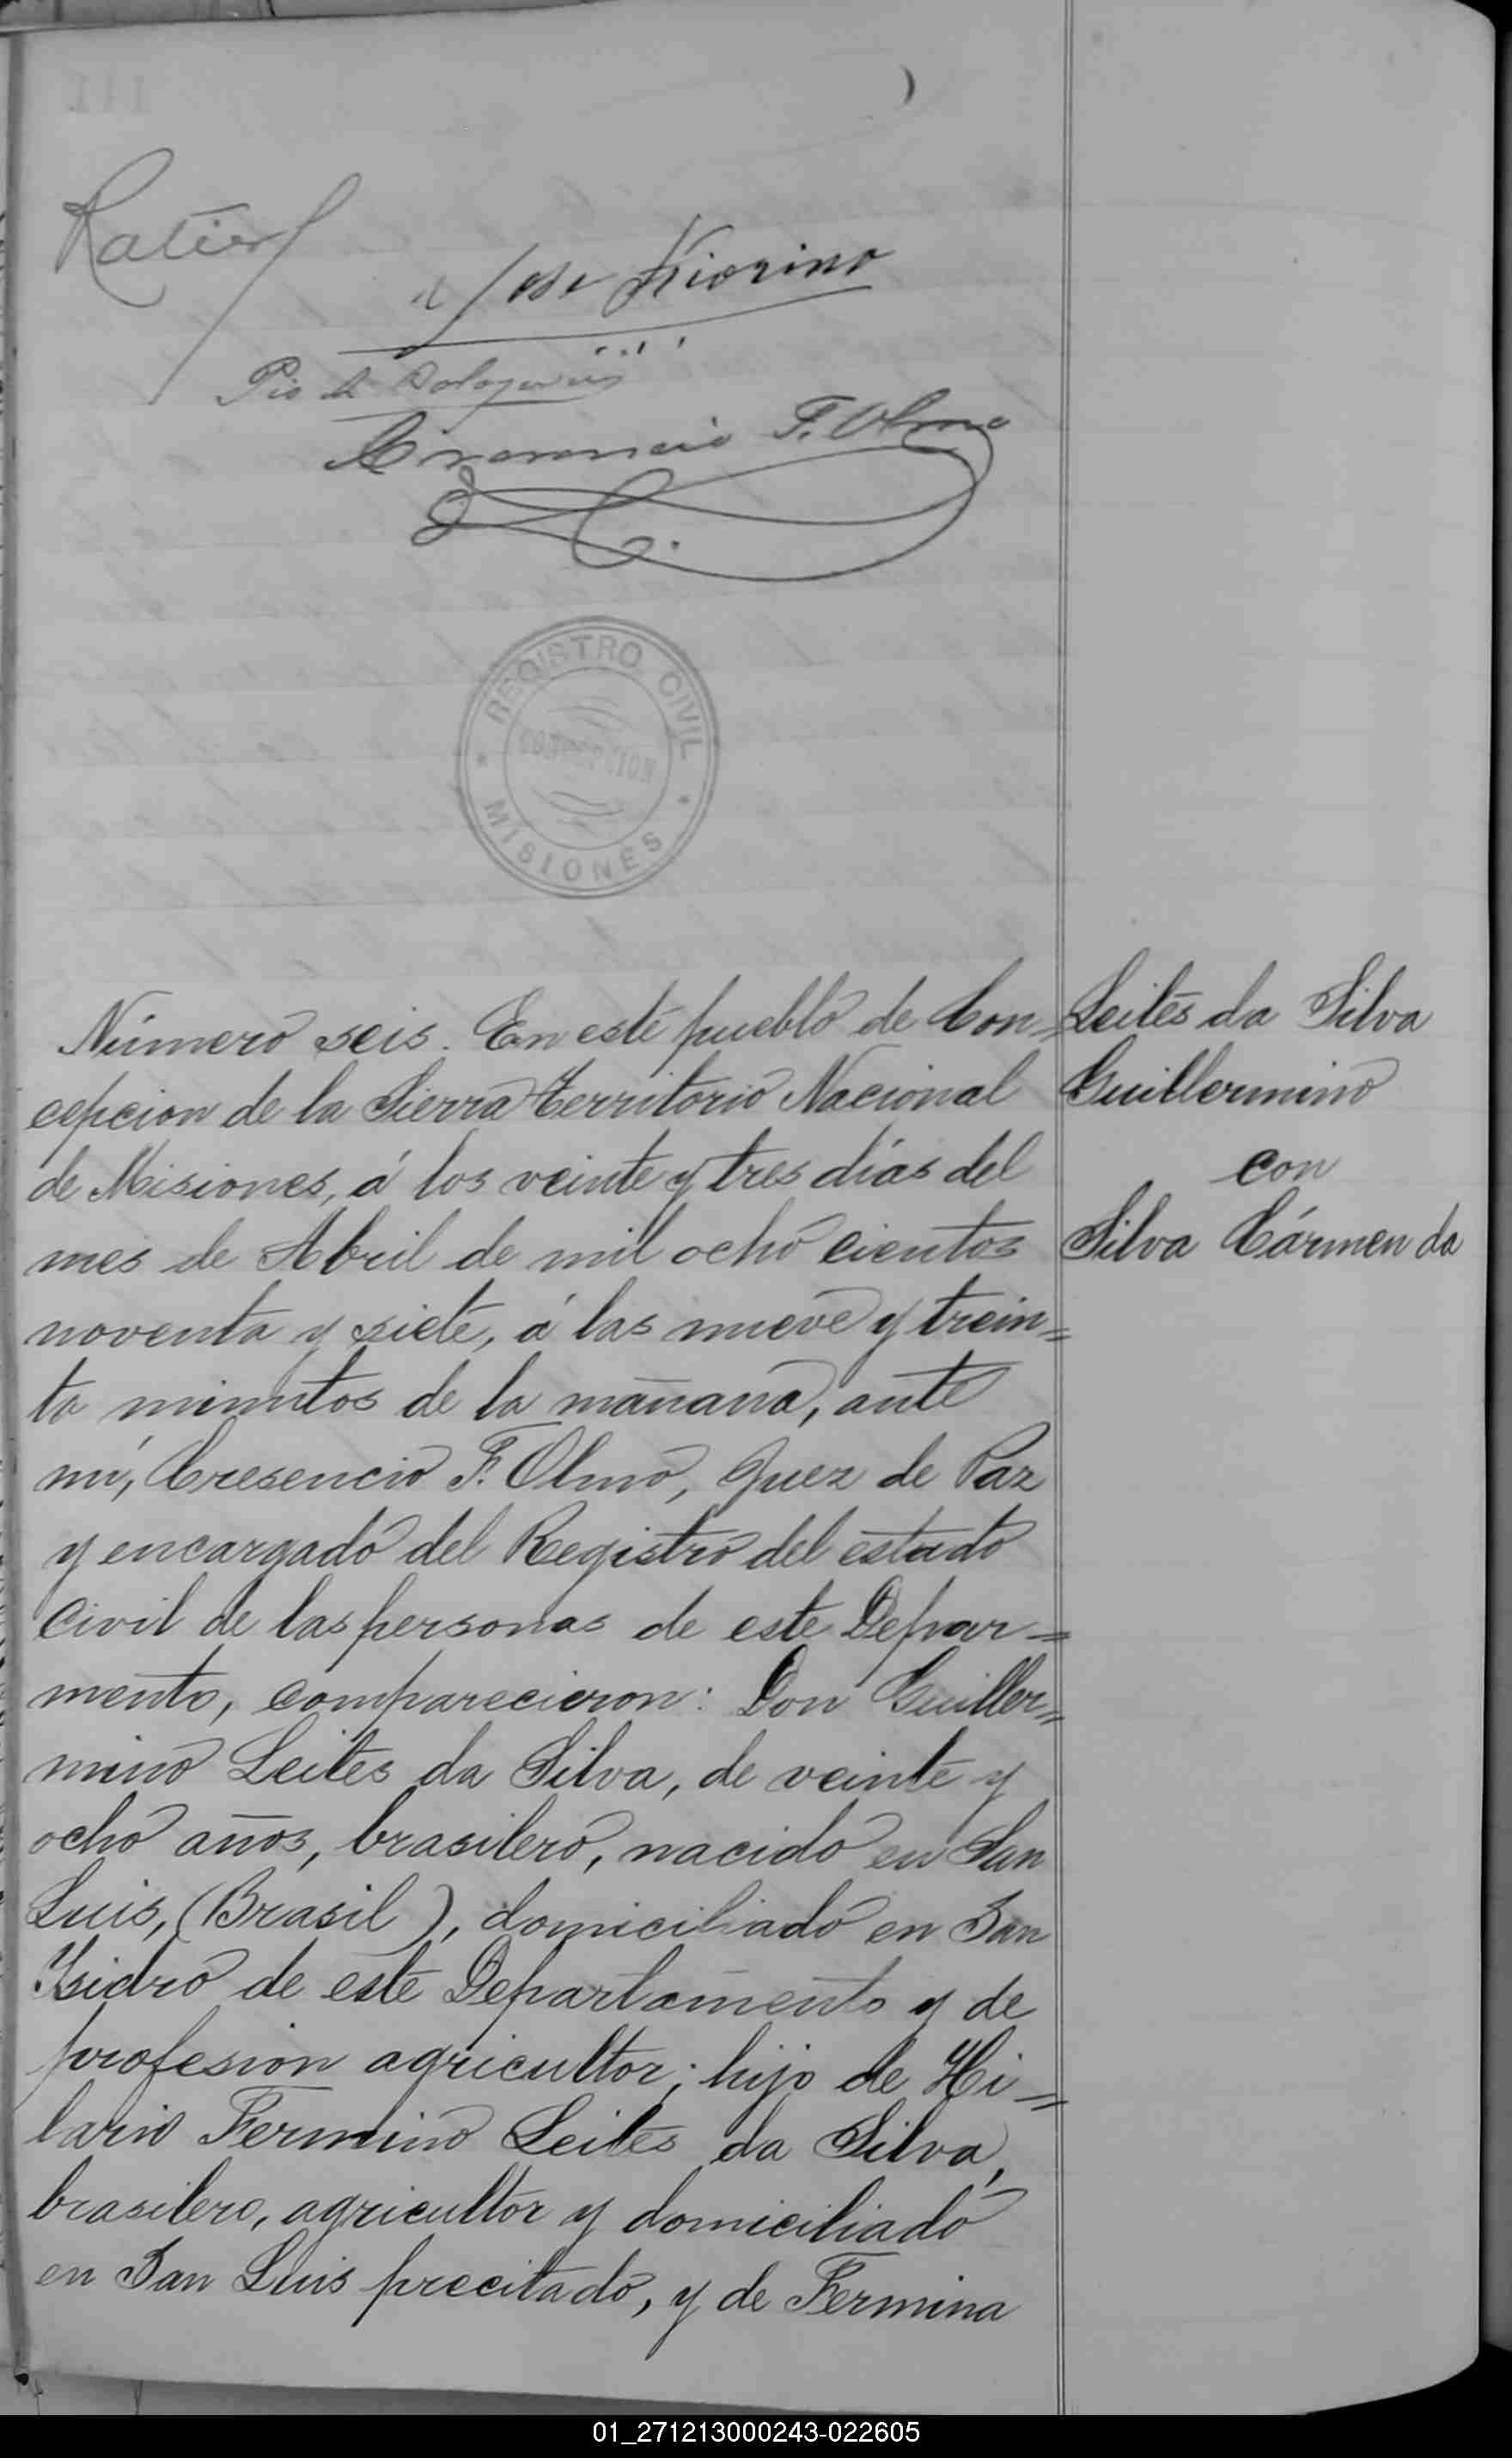 Ratier
Jose Fiorino
Pio A
Cresencio F. Olmo
REGISTRO CIVIL
CONCEPCION
MISIONES
Número seis. En este pueblo de Con=
cepcion de la Sierra Territorio Nacional
de Misiones, á los veinte y tres días del
mes de Abril de mil ocho cientos
noventa y siete, á las nueve y trein=
ta minutos de la mañana, ante
mí, Cresencio F. Olmo, Juez de Paz
y encargado del Registro del estado
Civil de las personas de este Depar=
mento, comparecieron: Don Guiller=
mino Leites da Silva, de veinte y
ocho años, brasilero, nacido en San
Luis, (Brasil), domiciliado en San
Isidro de este Departamento y de
profesion agricultor; hijo de Hi=
lario Fermino Leites da Silva,
brasilero, agricultor y domiciliado
en San Luis precitado, y de Fermina
Leites da Silva
Guillermino
con
Silva Cármen da
01_271213000243-022605